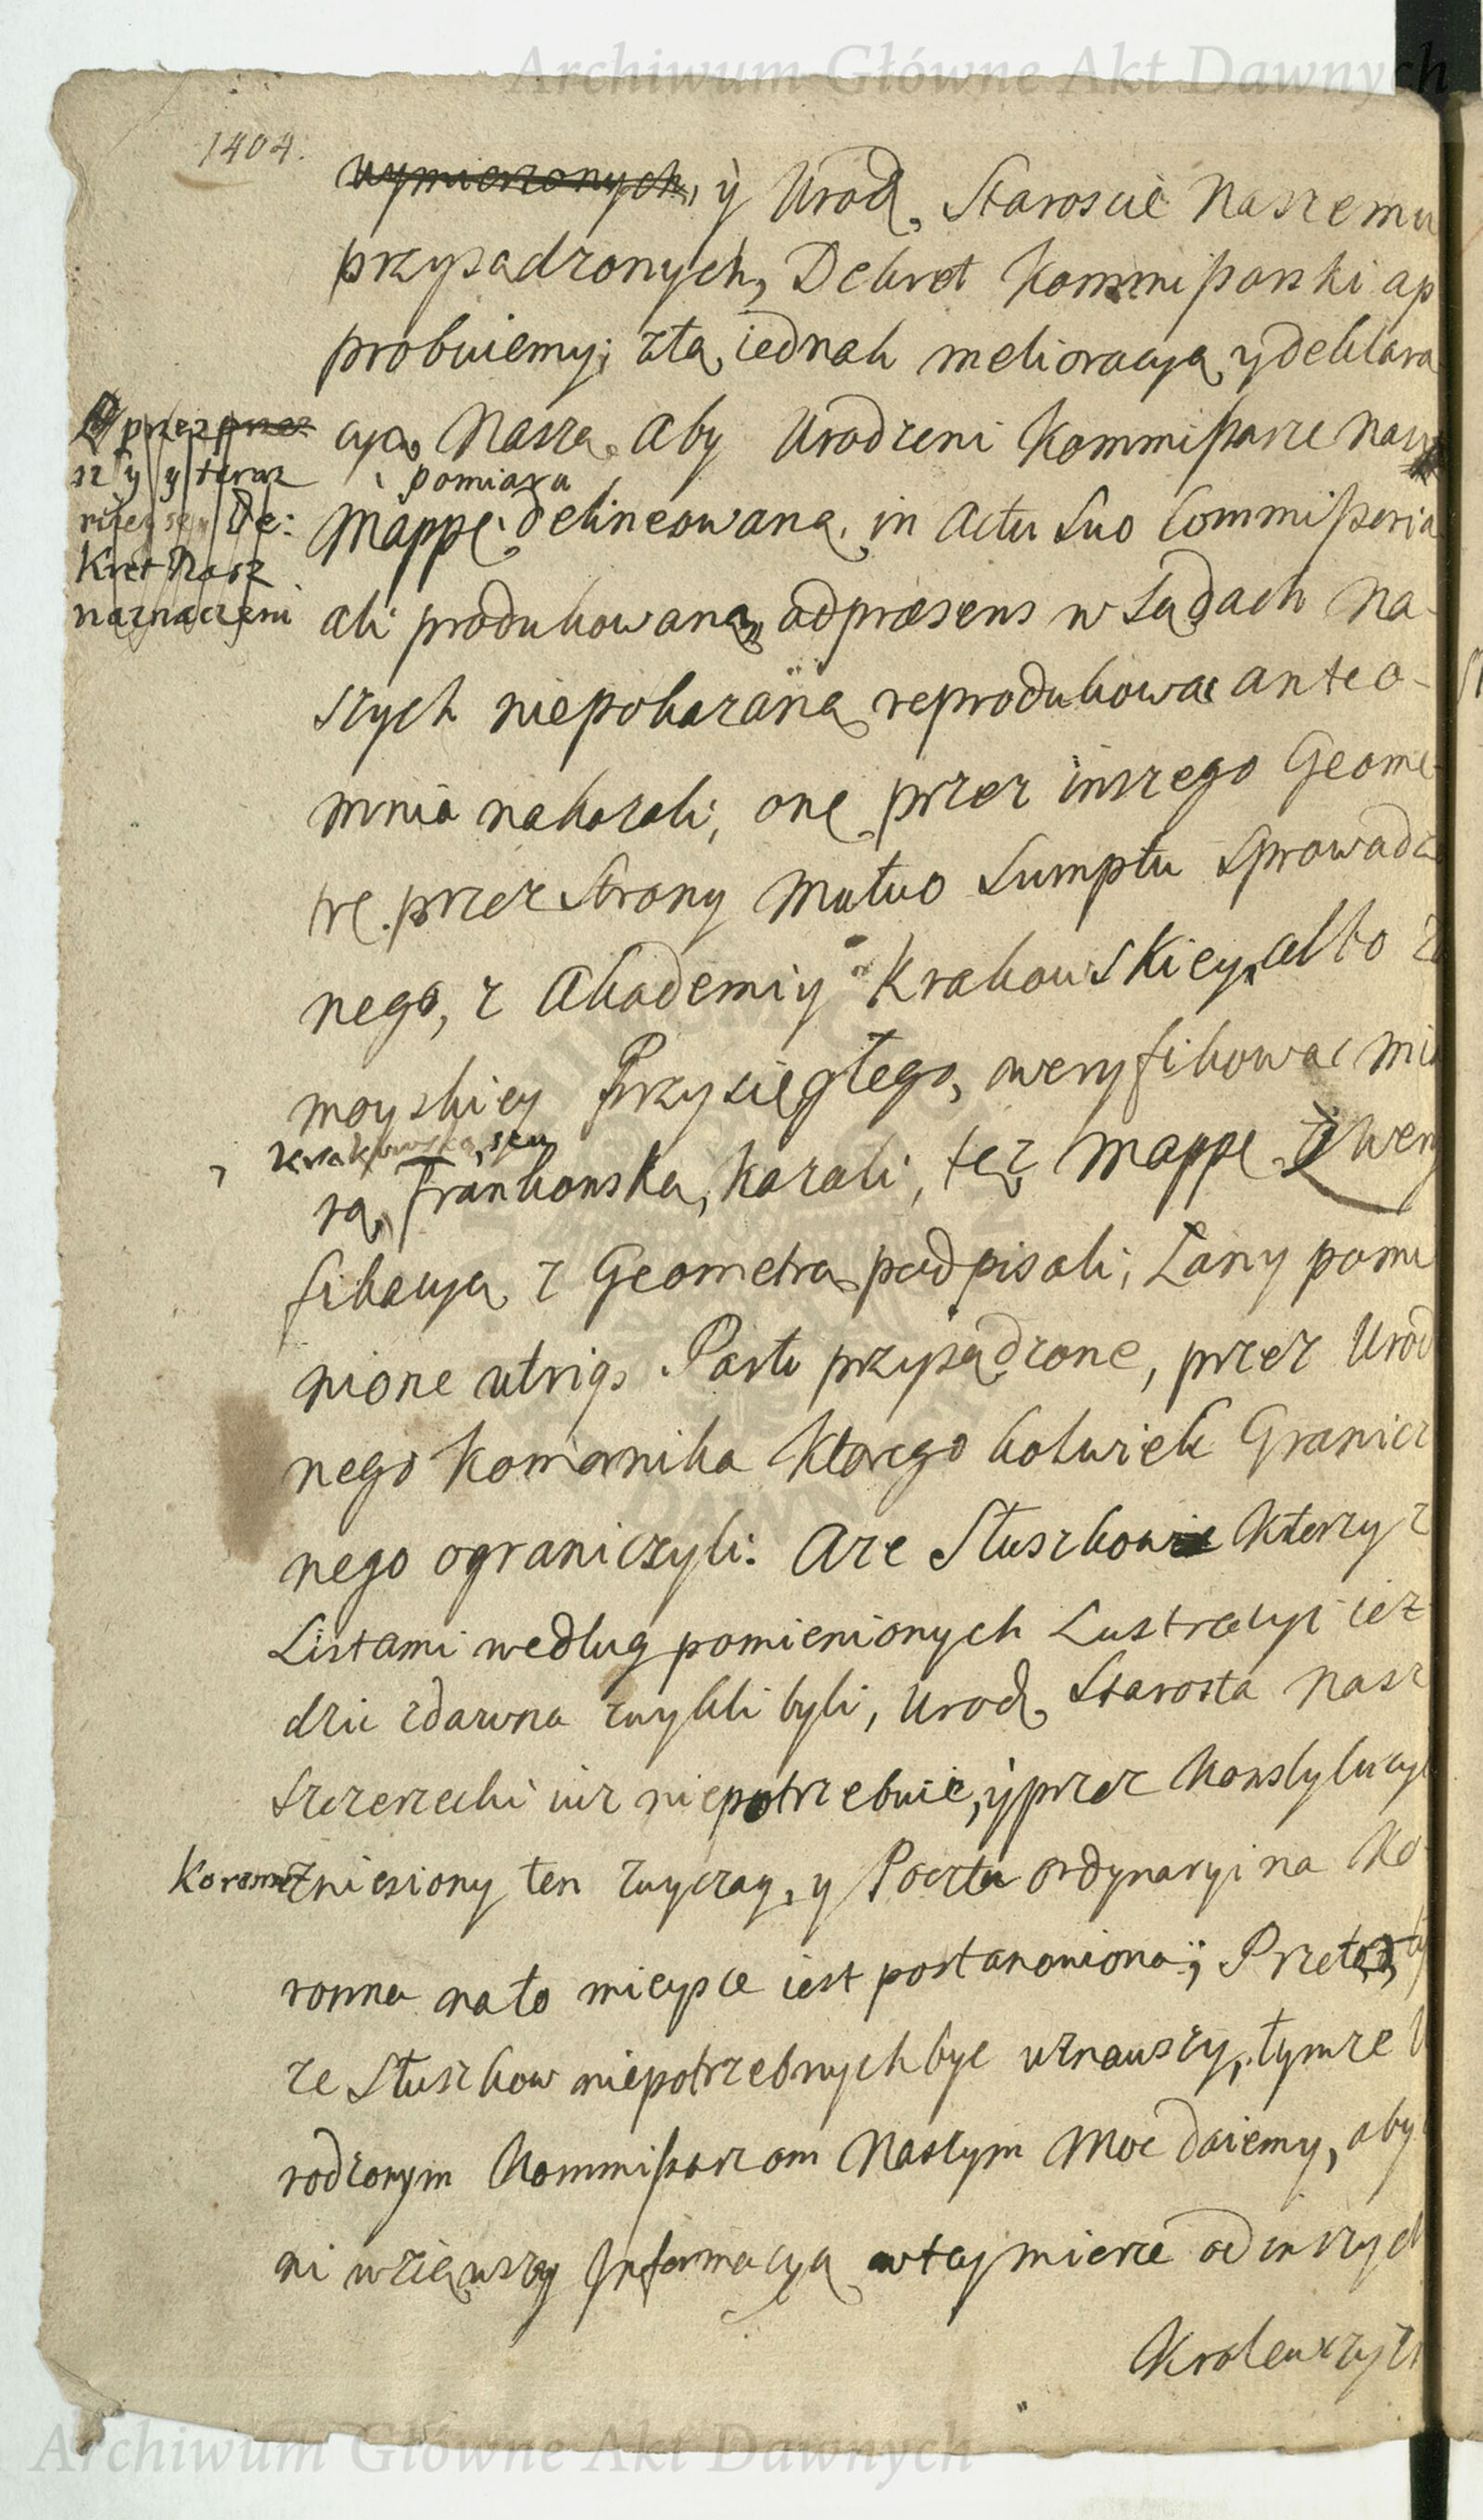 Archiwum Główne Akt Dawnych
1404.
wymierzonych, ÿ Urod. Staroscie Naszemu
przysądzonych, Dekret Kommissarski ap
probuiemy; z tą iednak melioracyą y deklara
cyą Naszą, Aby Urodzeni Kommissarze Nasi
przez
y teraz
De:
kret Nasz
naznaczeni
pomiarą
Mappę delineowaną, in Actu Suo Commissoria
ali produkowaną, ad præsens w Sądach Na-
szych niepokazaną reprodukować anteo-
mnia nakazali, onę przez inszego Geome-
trę przez Strony Mutuo Sumptu Sprowadzo
nego, z Akademiy Krakowskiey, albo Za
moyskiey Przysięgłego, zweryfikować mia
krakowską, seu
rą, Frankowską, kazali, też Mappę z wery
fikacyą z Geometrą podpisali, Łany pomie
nione utriq. Parti przysądzone, przez Urod
nego Komornika Ktorego kolwiek Granicz
nego ograniczyli. A że Słuszkow Ktorzy z
Listami według pomienionych Lustracyi iez
dzic zdawna zwykli byli, Urod. Starosta Nasz
Szczerzecki iuż niepotrzebuie, ÿ przez Konstytucyą
Koronne
zniesiony ten zwyczay, y Poczta ordynaryina Ko
ronna na to mieysce iest postanowiona; Przeto ty
ze Słuszkow niepotrzebnych byc uznawszy, tymze U
rodzonym Kommissarzom Naszym Moc daiemy, aby o
ni wziąwszy Informacyą w tey mierze od inszych
Krolewszczyzn
Archiwum Główne Akt Dawnych